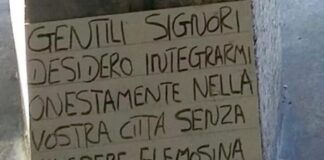 GENTILI SIGNORI
DESIDERO INTEGRARMI
ONESTAMENTE NELLA
VOSTRA CITTÀ SENZA
CHIEDERE ELEMOSINA